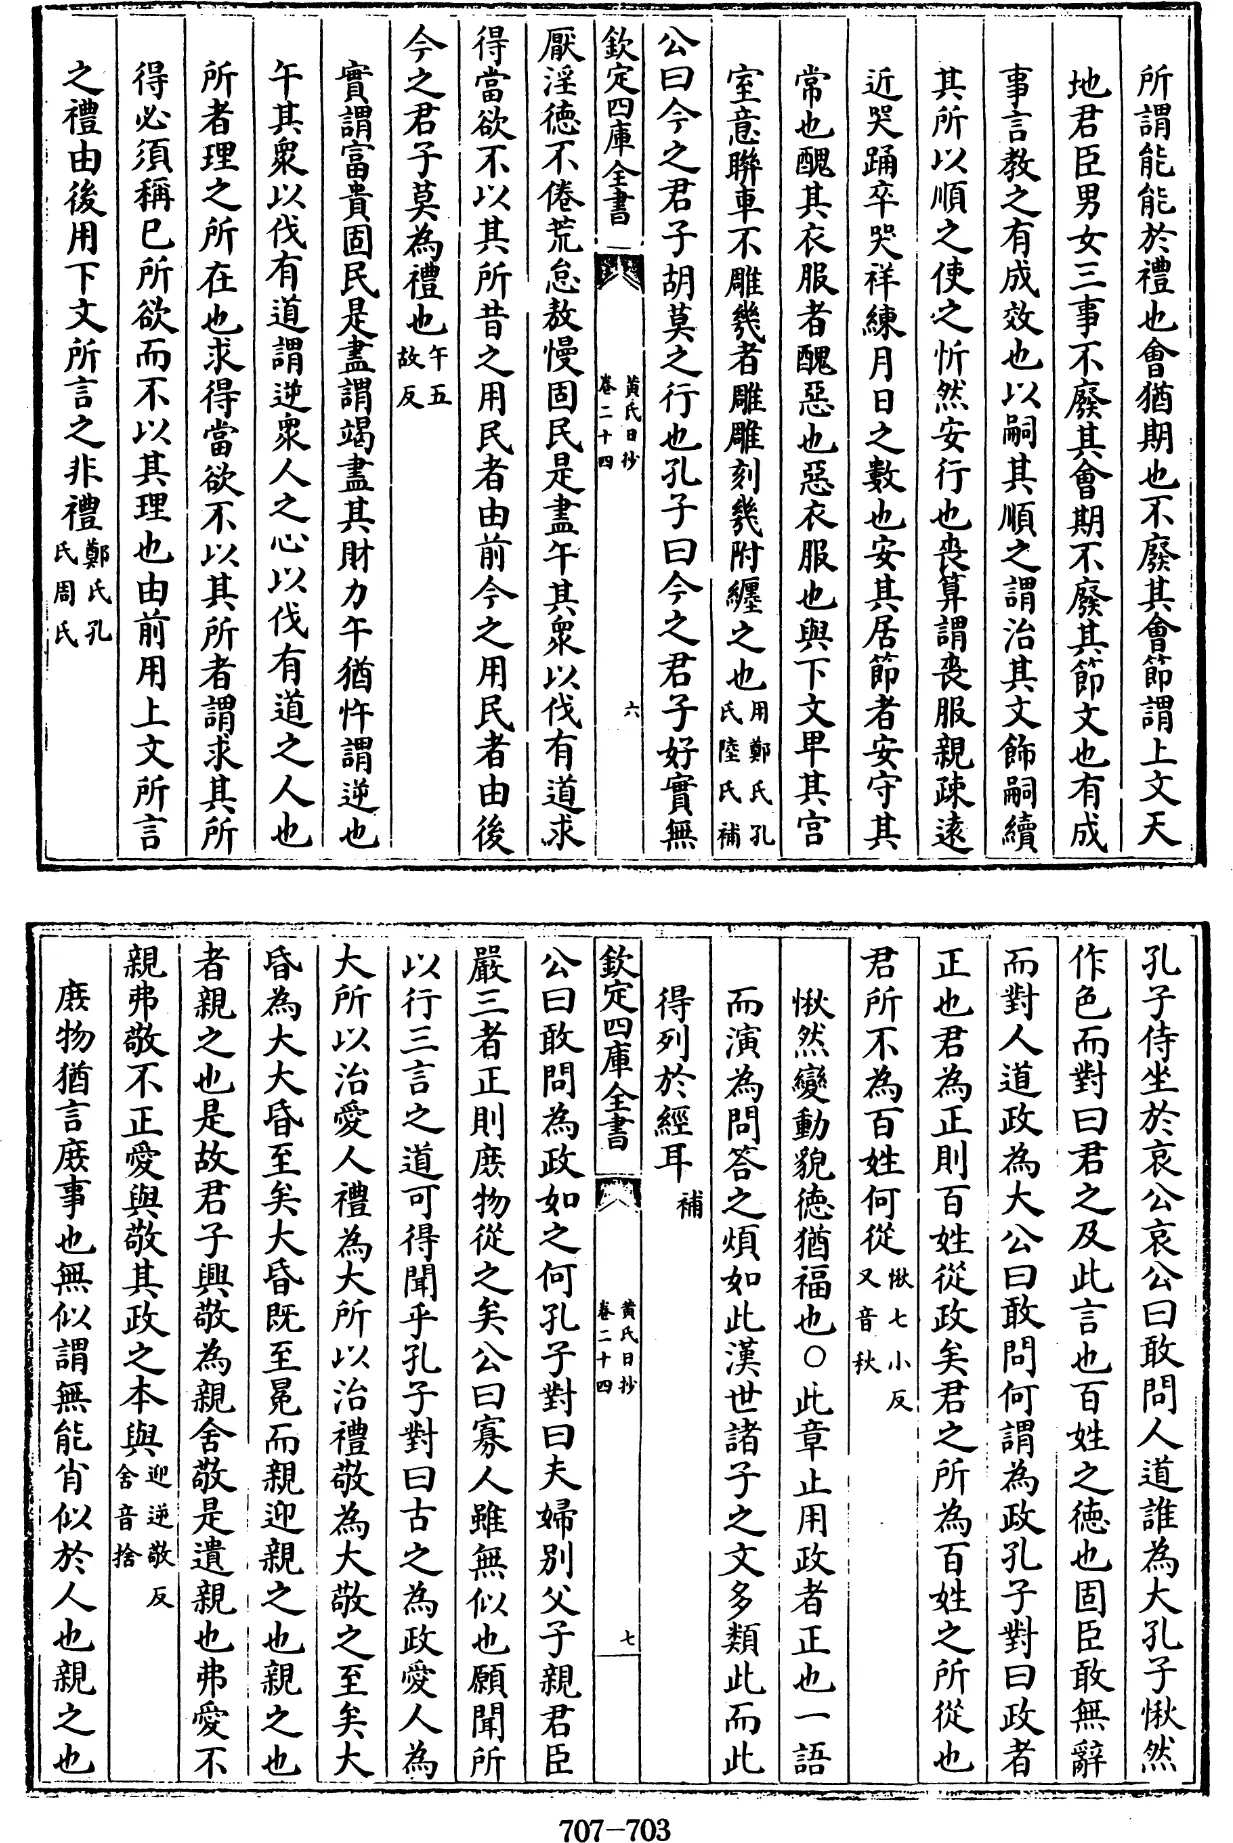 所謂能能於禮也會猶期也不廢其會節謂上文天
地君臣男女三事不廢其會期不廢其節文也有成
事言教之有成效也以嗣其順之謂治其文飾嗣續
其所以順之使之忻然安行也喪算謂喪服親疎遠
近哭踊卒哭祥練月日之數也安其居節者安守其
常也醜其衣服者醜惡也惡衣服也與下文卑其宮
室意聯車不雕幾者雕雕刻幾附纏之也用鄭氏孔氏陸氏補
公曰今之君子胡莫之行也孔子曰今之君子好實無
欽定四庫全書 黃氏日抄卷二十四 六
厭淫德不倦荒怠敖慢固民是盡午其衆以伐有道求
得當欲不以其所昔之用民者由前今之用民者由後
今之君子莫為禮也午五故反
實謂富貴固民是盡謂竭盡其財力午猶忤謂逆也
午其衆以伐有道謂逆衆人之心以伐有道之人也
所者理之所在也求得當欲不以其所者謂求其所
得必須稱已所欲而不以其理也由前用上文所言
之禮由後用下文所言之非禮鄭氏孔氏周氏
孔子侍坐於哀公哀公曰敢問人道誰為大孔子愀然
作色而對曰君之及此言也百姓之德也固臣敢無辭
而對人道政為大公曰敢問何謂為政孔子對曰政者
正也君為正則百姓從政矣君之所為百姓之所從也
君所不為百姓何從愀七小反又音秋
愀然變動貌德猶福也○此章止用政者正也一語
而演為問答之煩如此漢世諸子之文多類此而此
得列於經耳補
欽定四庫全書 黃氏日抄卷二十四 七
公曰敢問為政如之何孔子對曰夫婦別父子親君臣
嚴三者正則庶物從之矣公曰寡人雖無似也願聞所
以行三言之道可得聞乎孔子對曰古之為政愛人為
大所以治愛人禮為大所以治禮敬為大敬之至矣大
昏為大大昏至矣大昏既至冕而親迎親之也親之也
者親之也是故君子興敬為親舍敬是遺親也弗愛不
親弗敬不正愛與敬其政之本與迎逆敬反舍音捨
庶物猶言庶事也無似謂無能肖似於人也親之也
707-703